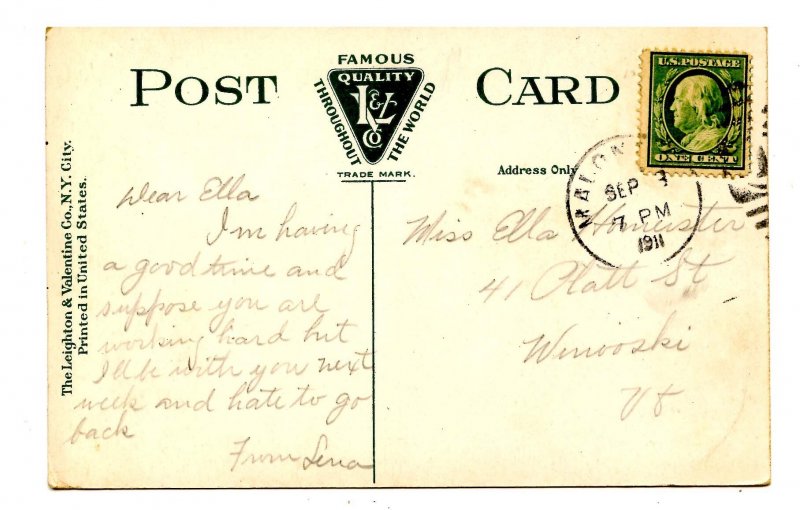 POST CARD
FAMOUS
QUALITY
THROUGHOUT THE WORLD
L&V
Co
TRADE MARK.
U.S. POSTAGE
ONE CENT
Address Only
MALON
SEP
7 PM
1911
The Leighton & Valentine Co., N.Y. City.
Printed in United States.
Dear Ella
I'm having
a good time and
suppose you are
working hard but
I'll be with you next
week and hate to go
back
From Lena
Miss Ella
41 Platt St
Winooski
Vt